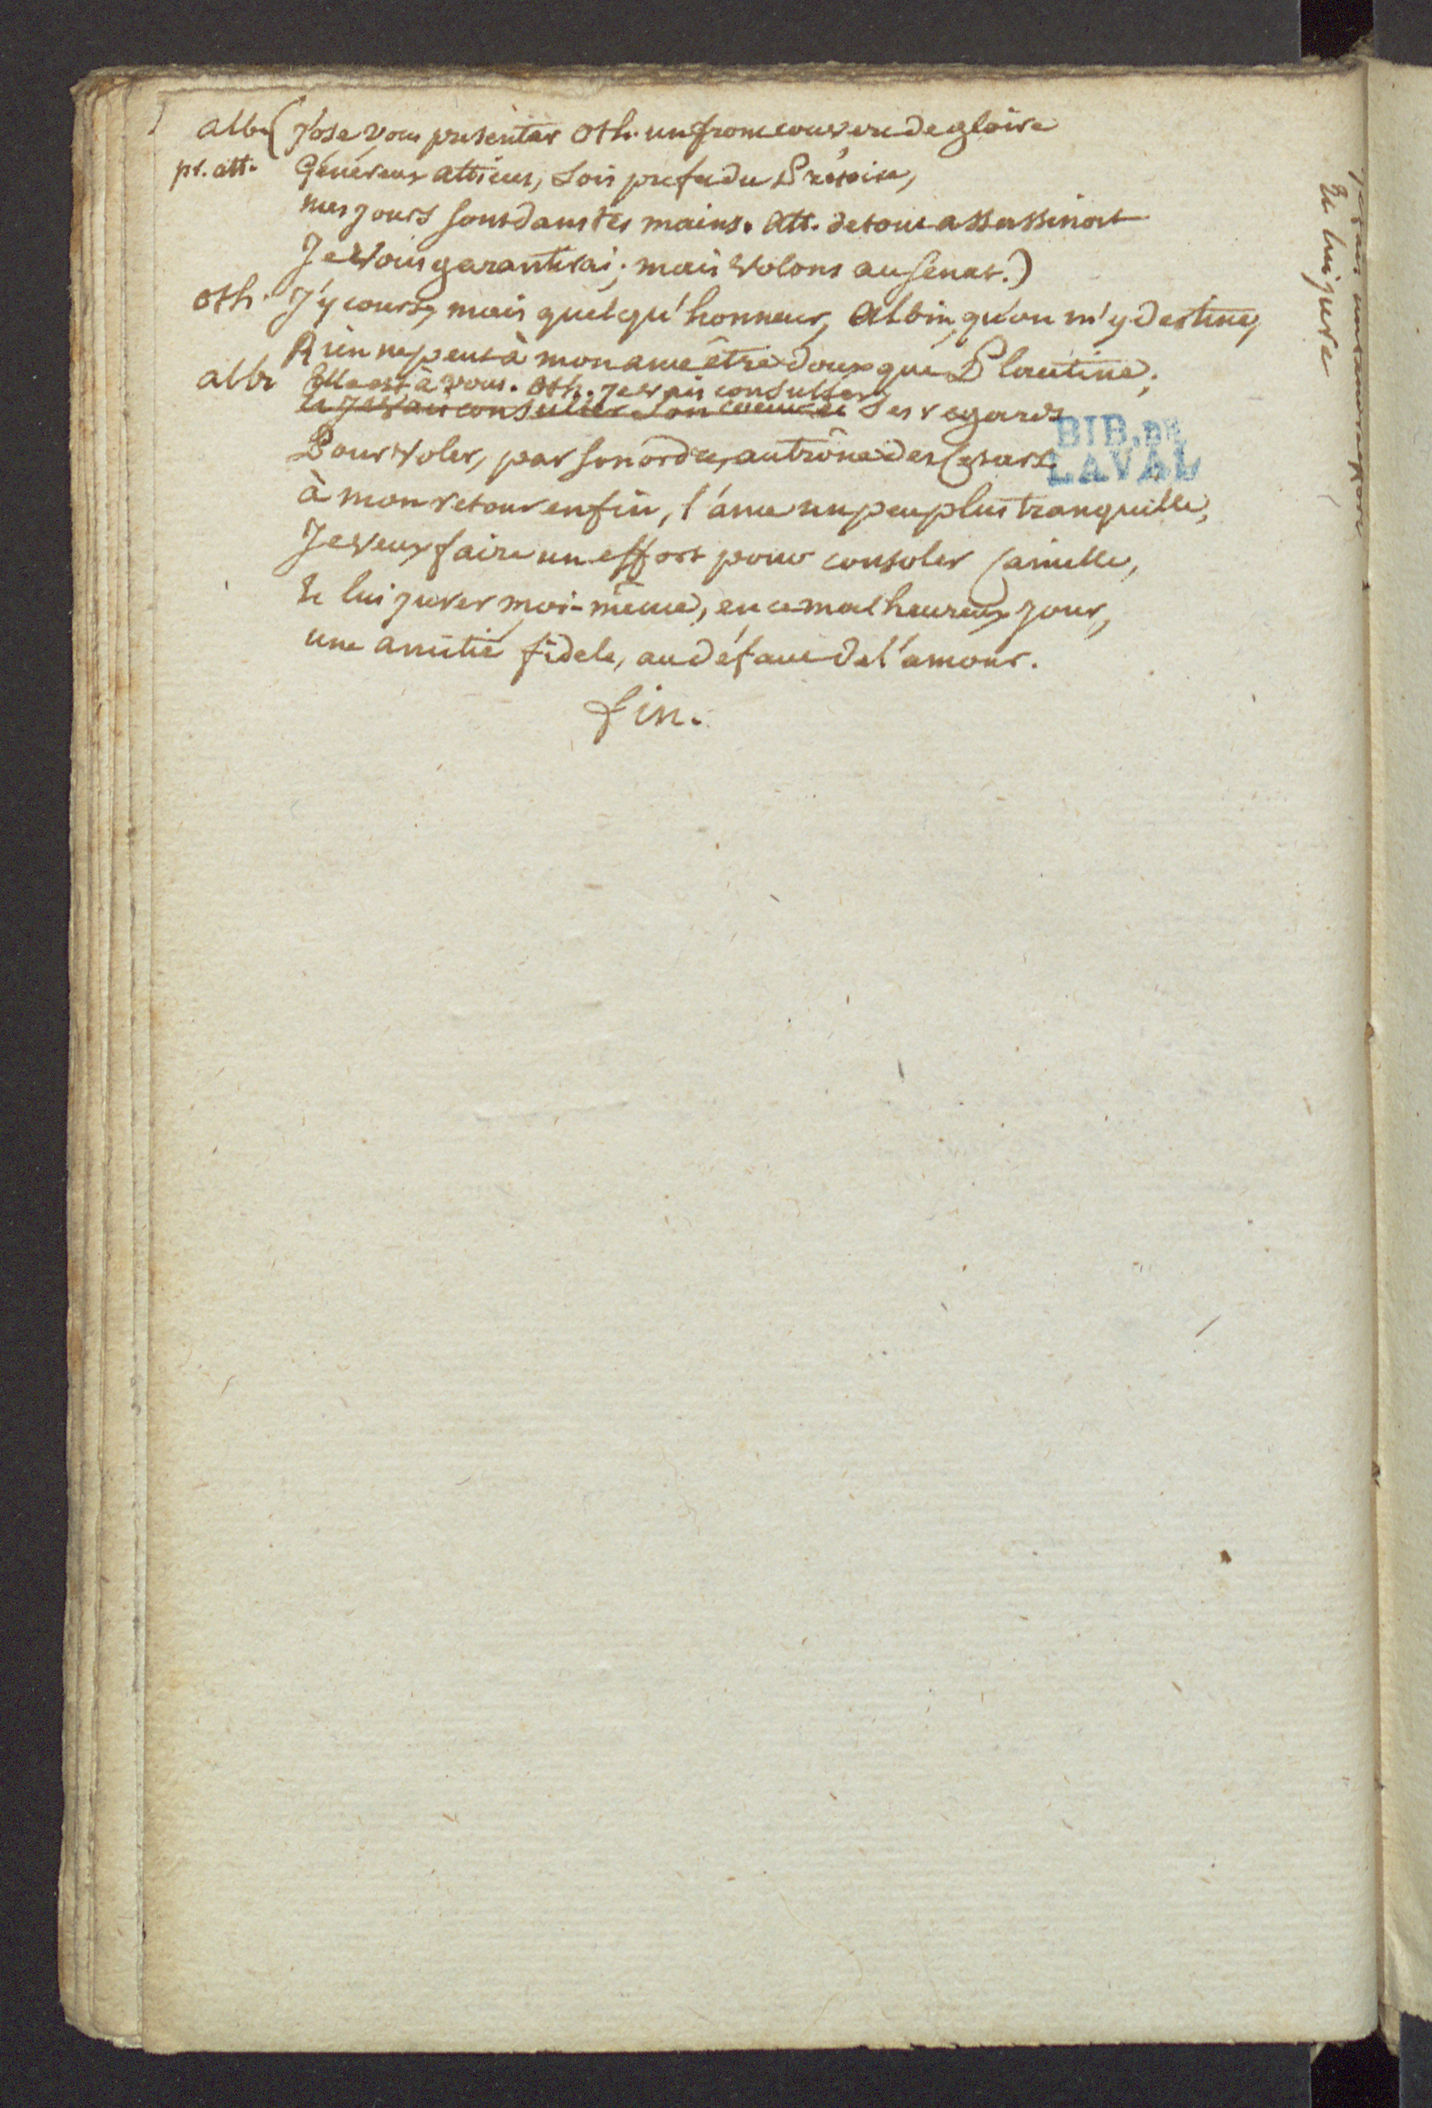 Alb. ( J'ose vous presenter Oth. un front couvert de gloire
pr. att. Généreux Atticus, sois prefet du Prétoire,
mes jours sont dans tes mains. Att. de tout assassinat
Je vous garantirai; mais volons au senat.)
Oth. J'y cours, mais quelqu'honneur, Albin, qu'on m'y destine,
Rien ne peut à mon ame être doux que Plautine;
albi Elle est à vous. Oth. Je vais consulter
et je vais consulter son coeur et ses regards
Pour voler, par son ordre, au trône des Cesars
à mon retour enfin, l'ame un peu plus tranquille,
Je veux faire un effort pour consoler Camille,
Et lui jurer moi-même, en ce malheureux jour,
une amitié fidele, au défaut de l'amour.
fin.
BIB. DE
LAVAL
Et lui jure